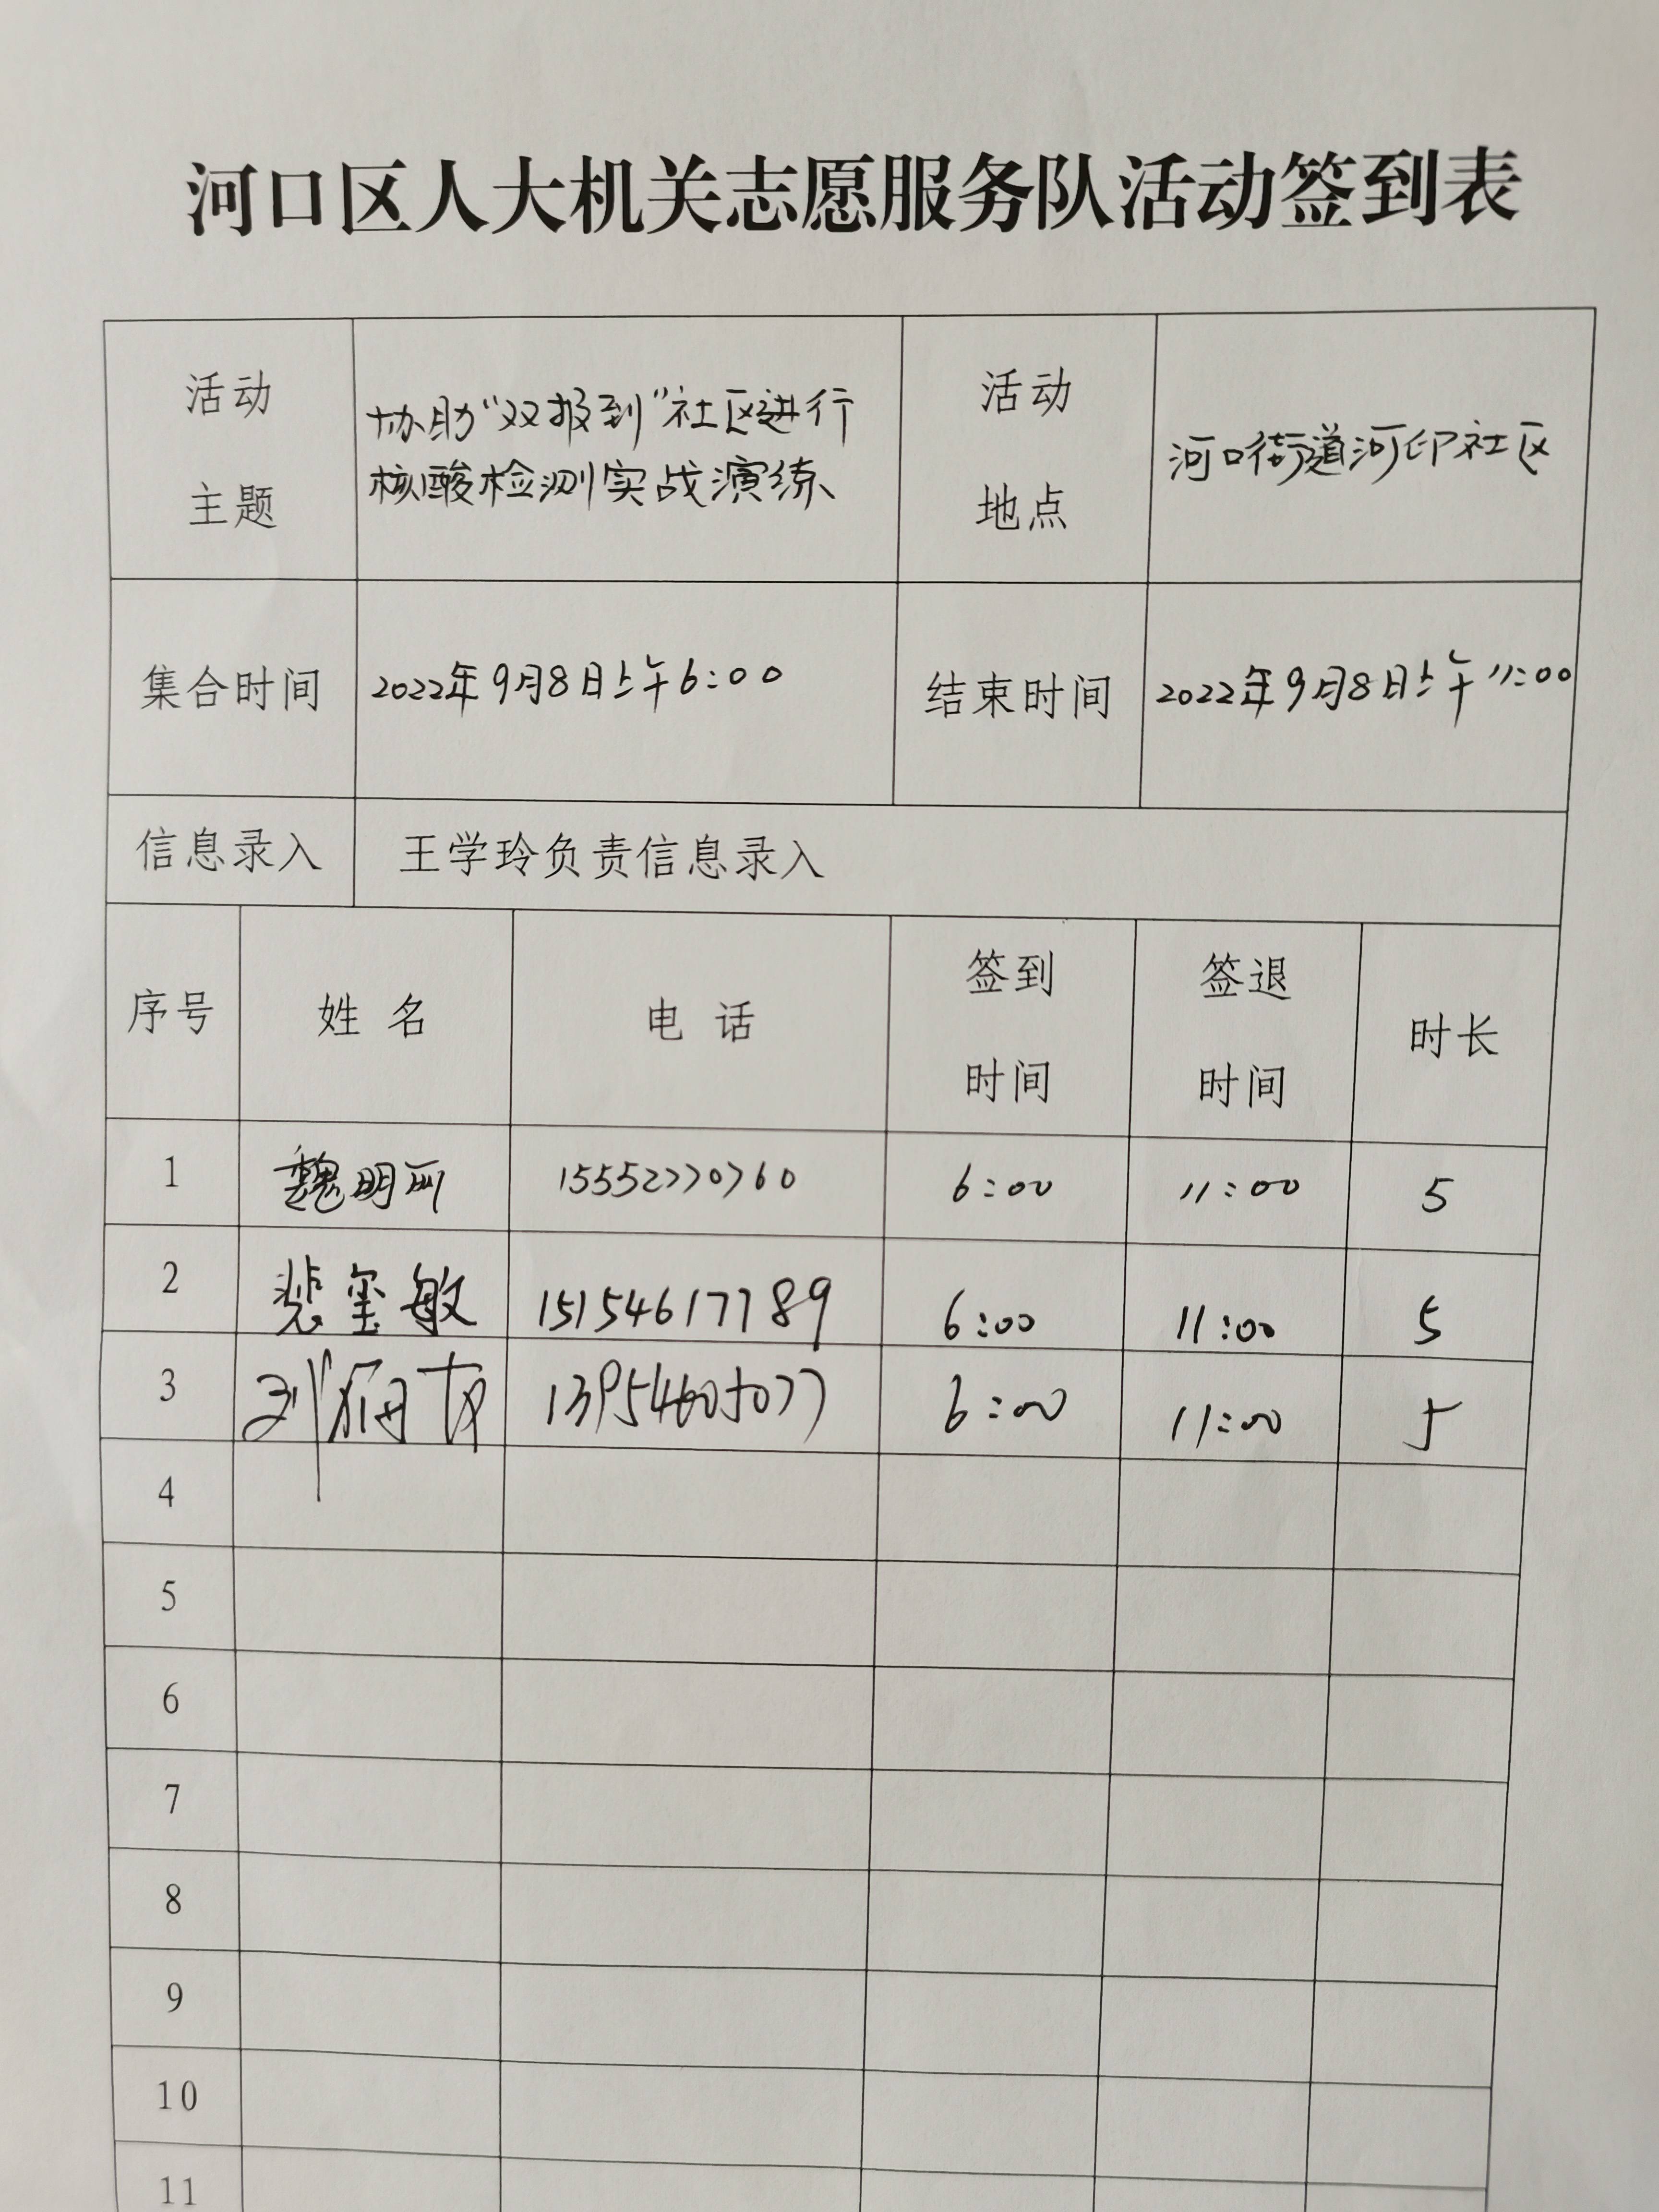 河口区人大机关志愿服务队活动签到表
活动
主题
协助“双报到”社区进行
核酸检测实战演练
活动
地点
河口街道河印社区
集合时间
2022年9月8日上午6:00
结束时间
2022年9月8日上午11:00
信息录入
王学玲负责信息录入
序号
姓 名
电 话
签到
时间
签退
时间
时长
1
魏明
15552770760
6:00
11:00
5
2
裴玺敏
15154617789
6:00
11:00
5
3
刘
13954605077
6:00
11:00
5
4
5
6
7
8
9
10
11